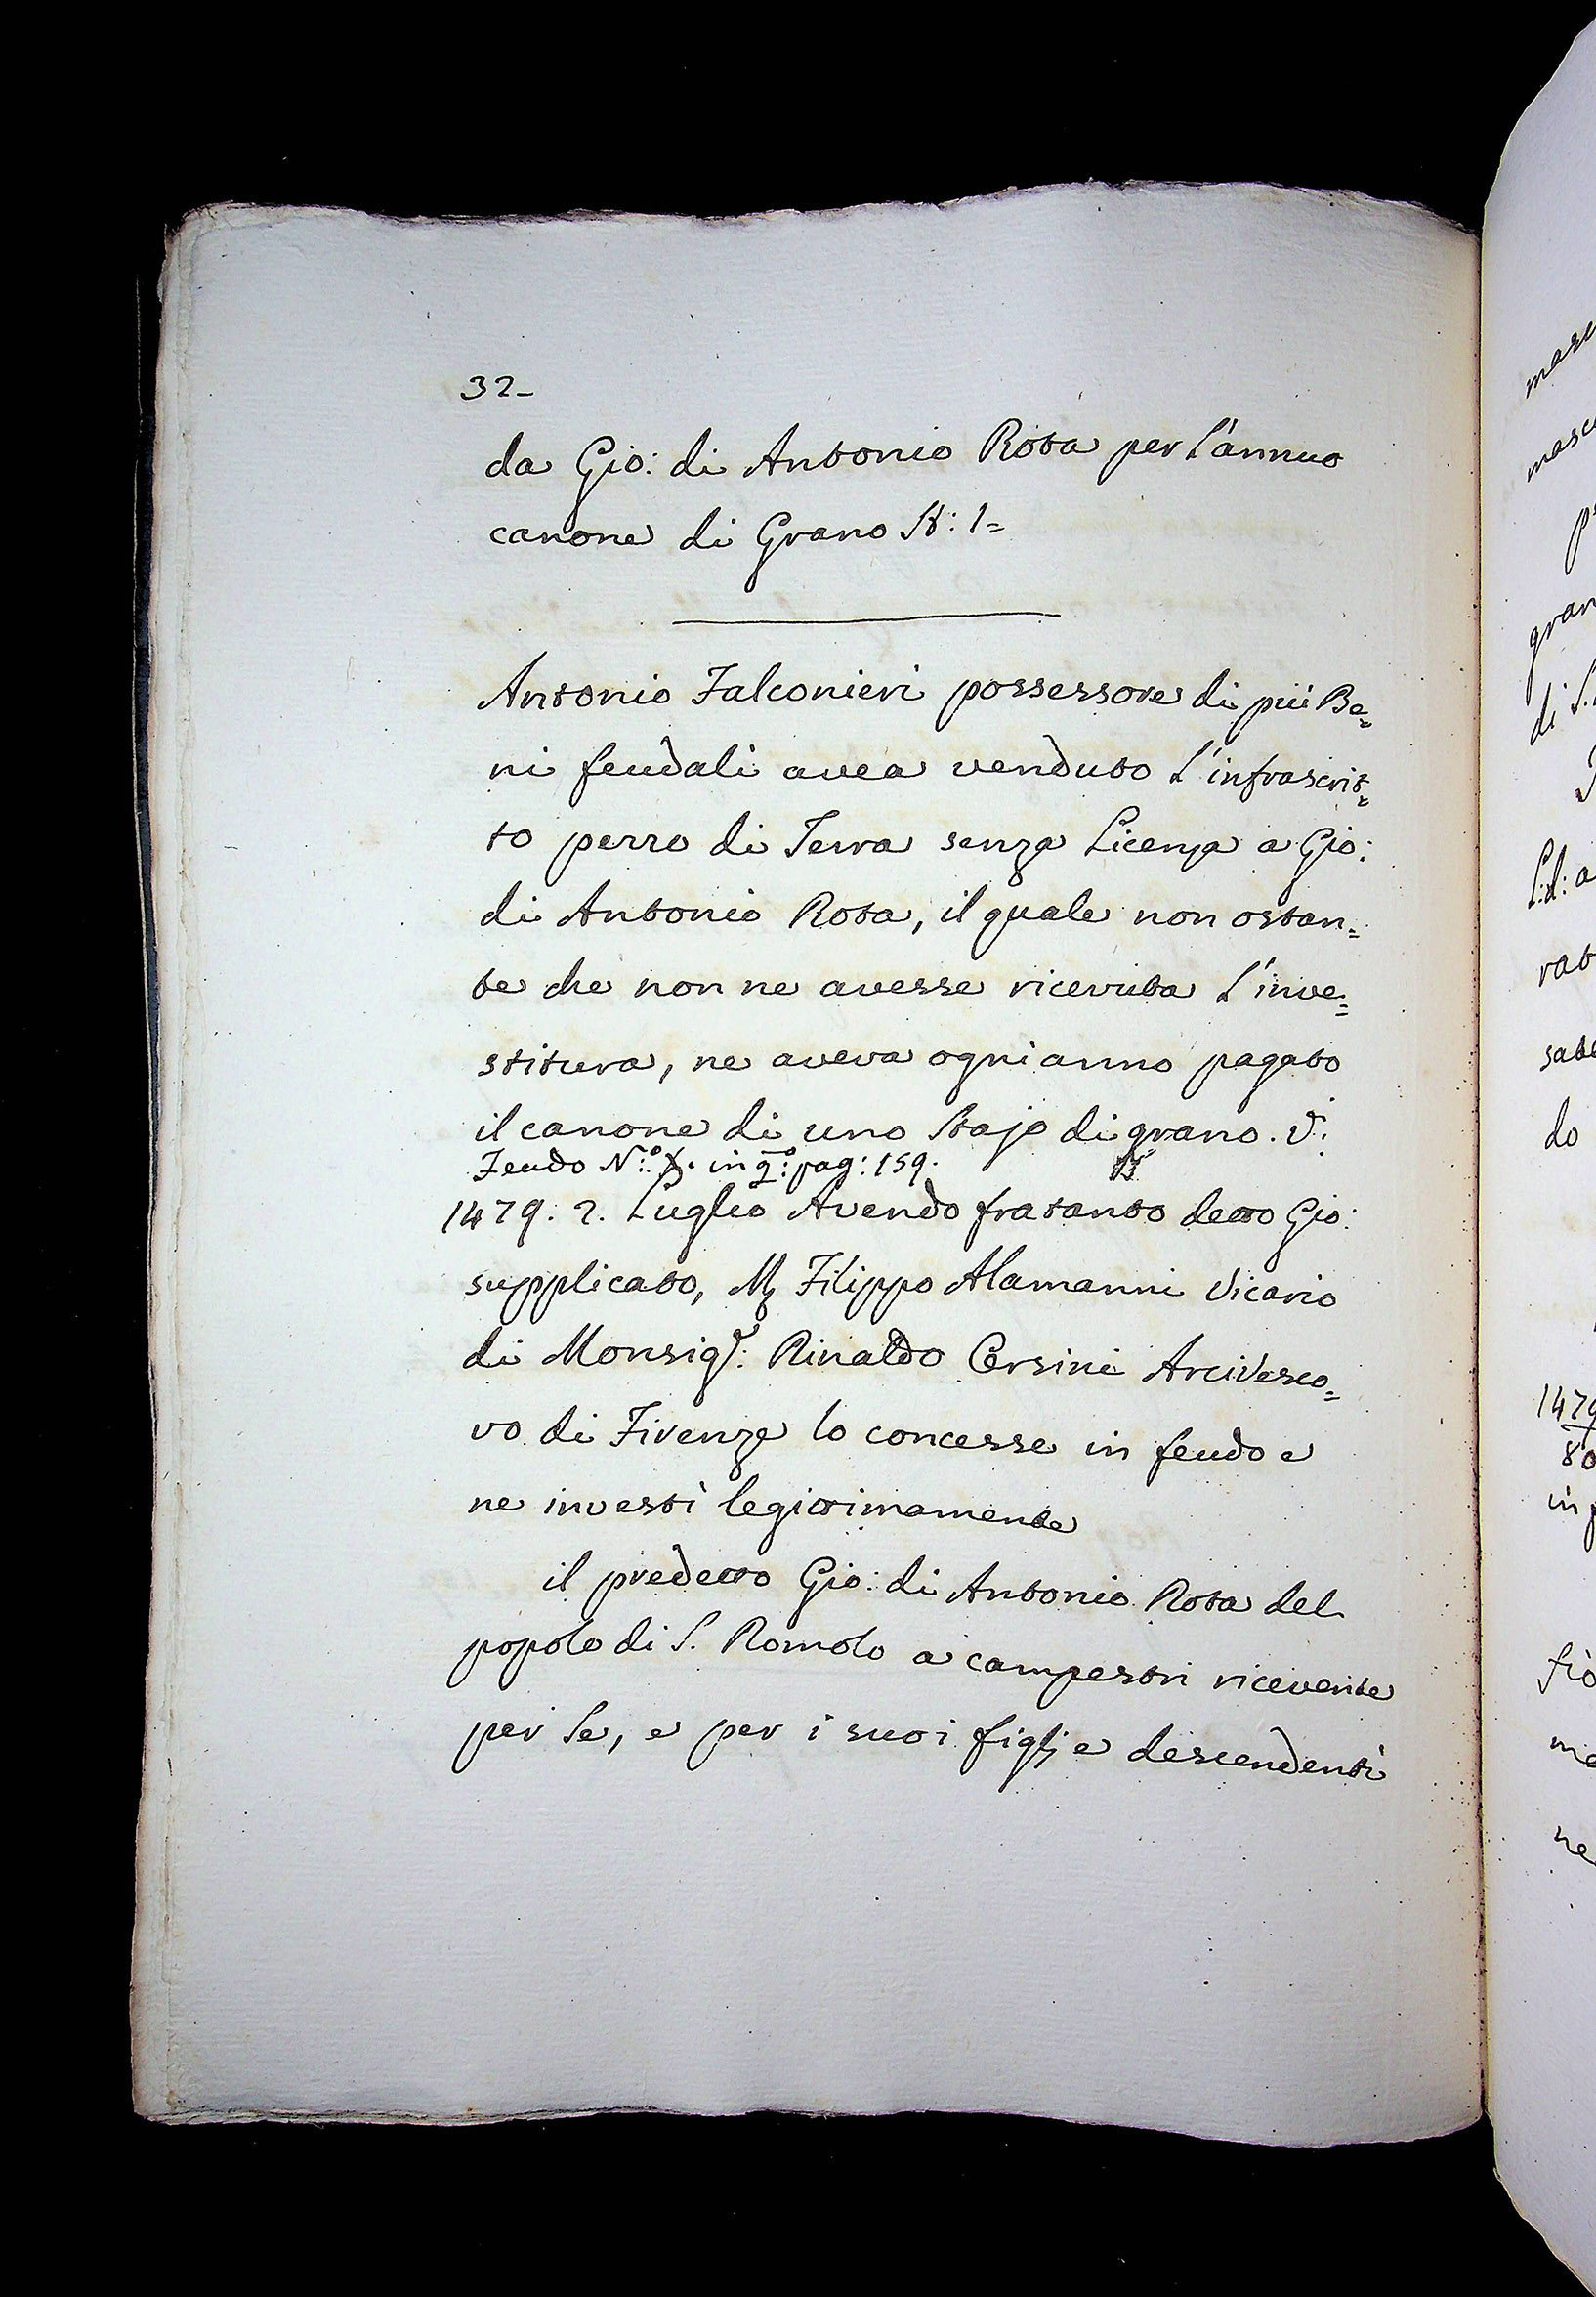 32-
da Gio: di Antonio Rota per l'annuo
canone di Grano St: 1=
Antonio Falconieri possessore di più Be=
ni feudali avea venduto l'infrascrit=
to pezzo di Terra senza Licenza a Gio:
di Antonio Rota, il quale non ostan=
te che non ne avesse ricevuta l'inve=
stitura, ne aveva ogni anno pagato
il canone di uno Stajo di grano. V:
Feudo N:º in q:º pag: 159.
1479. 2. Luglio Avendo fratanto detto Gio:
supplicato, M. Filippo Alamanni Vicario
di Monsigr: Rinaldo Orsini Arcivesco=
vo di Firenze lo concesse in feudo e
ne investì legittimamente
il predetto Gio: di Antonio Rota del
popolo di S. Romolo a campestri ricevente
per Se, e per i suoi figlj e descendenti
mas
masc
gran
di S.
L:d: a
rat
sat
do
1479
80
in p
fio
me
ne